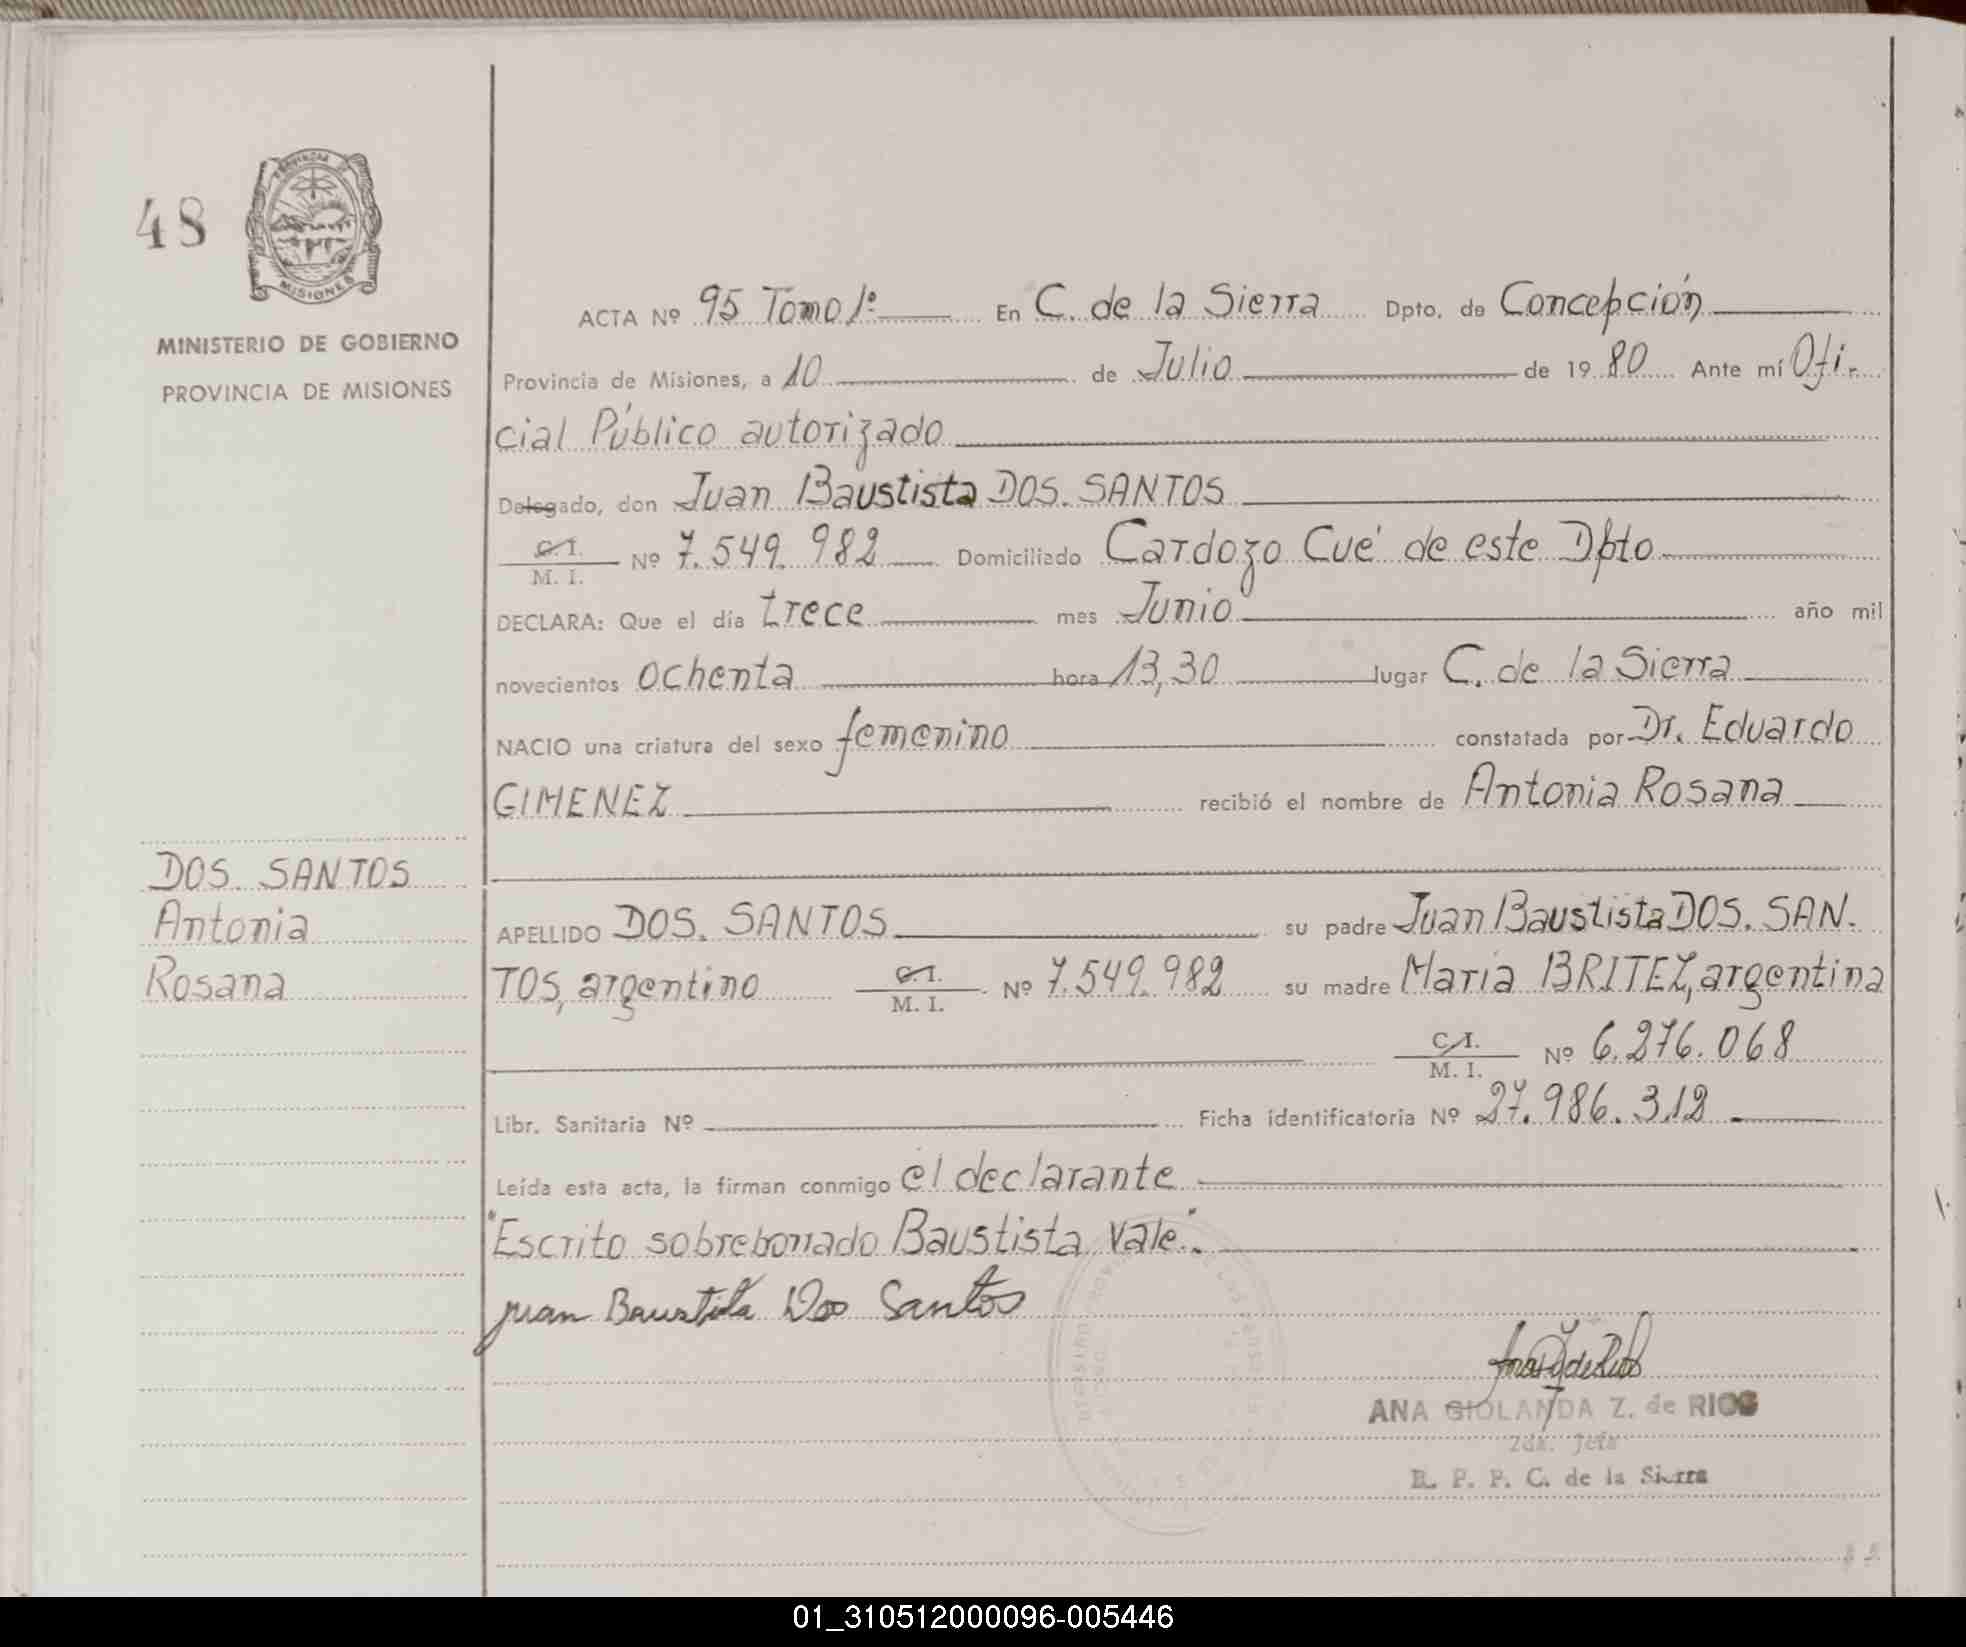 48
PROVINCIA DE
MISIONES
MINISTERIO DE GOBIERNO
PROVINCIA DE MISIONES
DOS. SANTOS
Antonia
Rosana
ACTA Nº 95 Tomo 1º En C. de la Sierra Dpto. de Concepción
Provincia de Misiones, a 10 de Julio de 19 80 Ante mí Ofi-
cial Público autorizado
Delegado, don Juan Baustista DOS. SANTOS
C. I.
M. I. Nº 7.549.982 Domiciliado Cardozo Cué de este Dpto
DECLARA: Que el día trece mes Junio año mil
novecientos ochenta hora 13,30 lugar C. de la Sierra
NACIO una criatura del sexo femenino constatada por Dr. Eduardo
GIMENEZ recibió el nombre de Antonia Rosana
APELLIDO DOS. SANTOS su padre Juan Baustista DOS. SAN-
TOS, argentino C. I.
M. I. Nº 7.549.982 su madre María BRITEZ, argentina
C. I.
M. I. Nº 6.276.068
Libr. Sanitaria Nº Ficha identificatoria Nº 27.986.312
Leída esta acta, la firman conmigo el declarante
"Escrito sobreborrado Baustista vale".
Juan Baustista Dos Santos
ANA GIOLANDA Z. de RIOS
2da. Jefa
R. P. P. C. de la Sierra
01_310512000096-005446